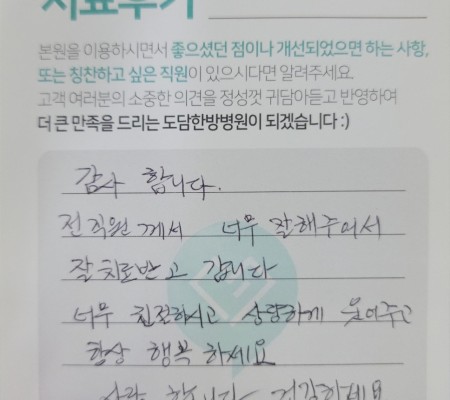 치료후기
본원을 이용하시면서 좋으셨던 점이나 개선되었으면 하는 사항,
또는 칭찬하고 싶은 직원이 있으시다면 알려주세요.
고객 여러분의 소중한 의견을 정성껏 귀담아듣고 반영하여
더 큰 만족을 드리는 도담한방병원이 되겠습니다 :)
감사 합니다.
전직원 께서 너무 잘해주어서
잘치료받고 갑니다
너무 친절하시고 상량하게 웃어주고
항상 행복 하세요
사랑 합니다 건강하세요